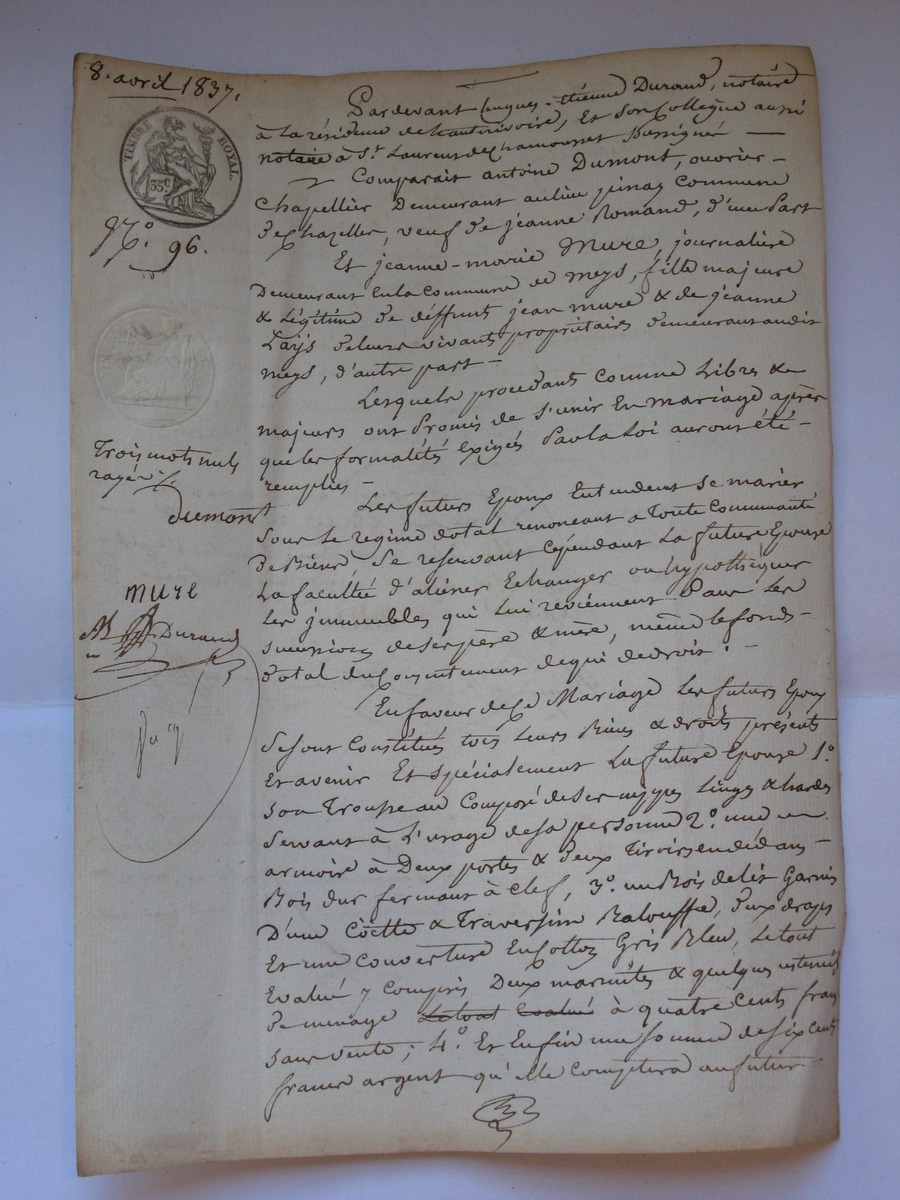 8. avril 1837.
TIMBRE ROYAL.
35c
No. 96.
Trois mots nuls
rayés
Dumont
Mure
Durand
Pardevant hugues-étienne Durand, notaire
à la résidence de hauterivoire, Et Son Collegue aussi
notaire à St. Laurent de Chamousset Soussignés —
Comparait antoine Dumont, ouvrier –
Chapellier Demeurant au lieu pinay Commune
de Chazelles, veuf de jeanne Romand, d'une Part
Et jeanne-marie Mure, journaliere
Demeurant En la Commune de Meys, fille majeure
& Légitime de deffunts jean mure & de jeanne
Lays de leurs vivant propriétaires demeurant audit
meys, d'autre part –
Lesquels procedant Comme Libres &
majeurs ont Promis de S'unir En mariage après
que les formalités Exigés Par la Loi auront été –
remplies –
Les futurs Epoux Entendent Se marier
Sous Le regime dotal renonçant a Toute Communauté
de Biens, Se reservant Cépendant La future Epouse
La faculté d'aliéner Echanger ou hypothéquer
Les immeubles qui Lui reviennent Par Les
successions de Ses père & mère, même le fonds –
dotal du Consentement de qui de droit. –
En faveur de Ce Mariage Les futurs Epoux
Se Sont Constitués tous Leurs Biens & droits présents
Et avenir Et spécialement La future Epouse 1o.
Son Trousseau Composé de Ses nippes Linges & hardes
Servant à L'usage de Sa personne 2o. une
armoire à Deux portes & deux Tiroirs en dédans –
Bois dur fermant à clef, 3o. un Bois de Lit Garnis
D'une Coëtte & Traversin Balouffe, deux draps
Et une Couverture En Cotton Gris Bleu, Le tout
Evalué y Compris Deux marmites & quelques ustensils
de menage Le tout Evalué à quatre Cents francs
sans vente; 4o. Et Enfin une Somme de Six Cents
francs argent qu'elle Comptera au futur –